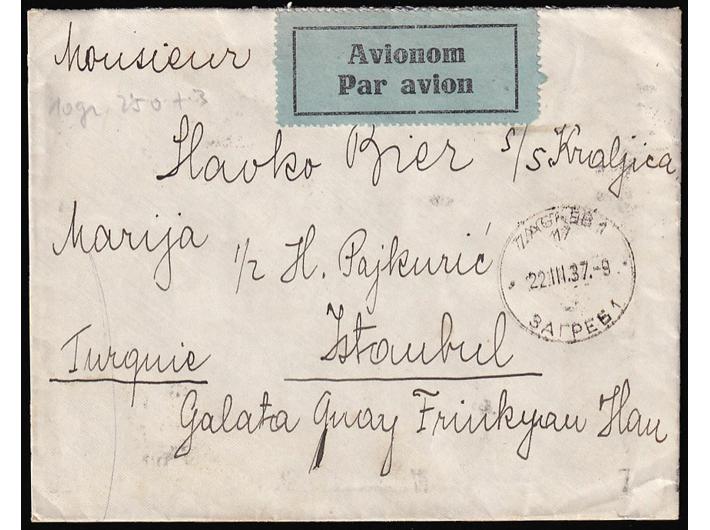 Avionom
Par avion
Monsieur
10gr. 250 + 3
Slavko Bier s/s. Kraljica
Marija 1/2 H. Pajkurić
Turquie Istanbul
Galata Quay Frinkyan Han
ZAGREB 1
17
22.III.37.-9
ЗАГРЕБ 1
7